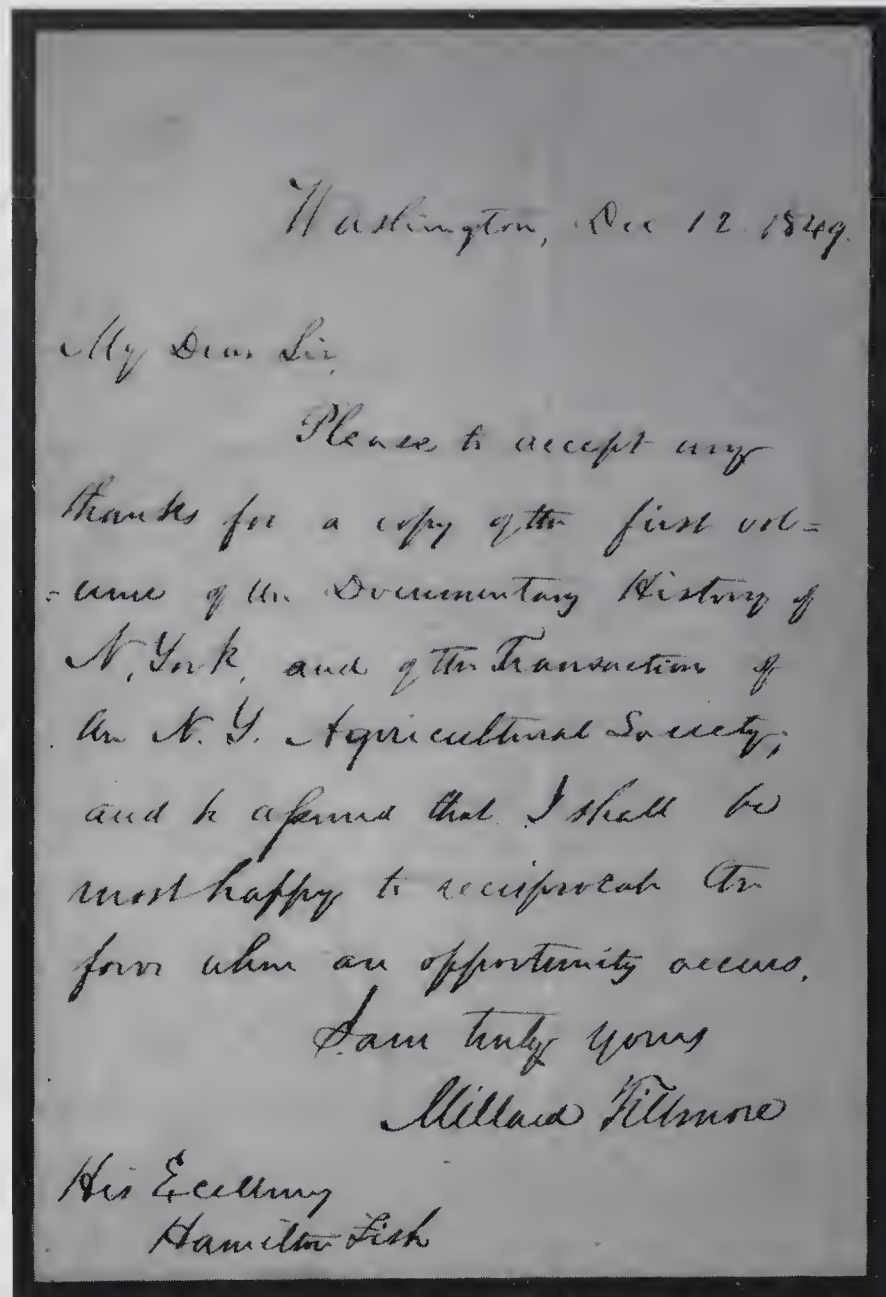 Washington, Dec 12. 1849.
My Dear Sir,
Please to accept my
thanks for a copy of the first vol=
=ume of the Documentary History of
N. York, and of the Transactions of
the N. Y. Agricultural Society;
and be assured that I shall be
most happy to reciprocate the
favor when an opportunity occurs.
I am truly yours
Millard Fillmore
His Excellency
Hamilton Fish